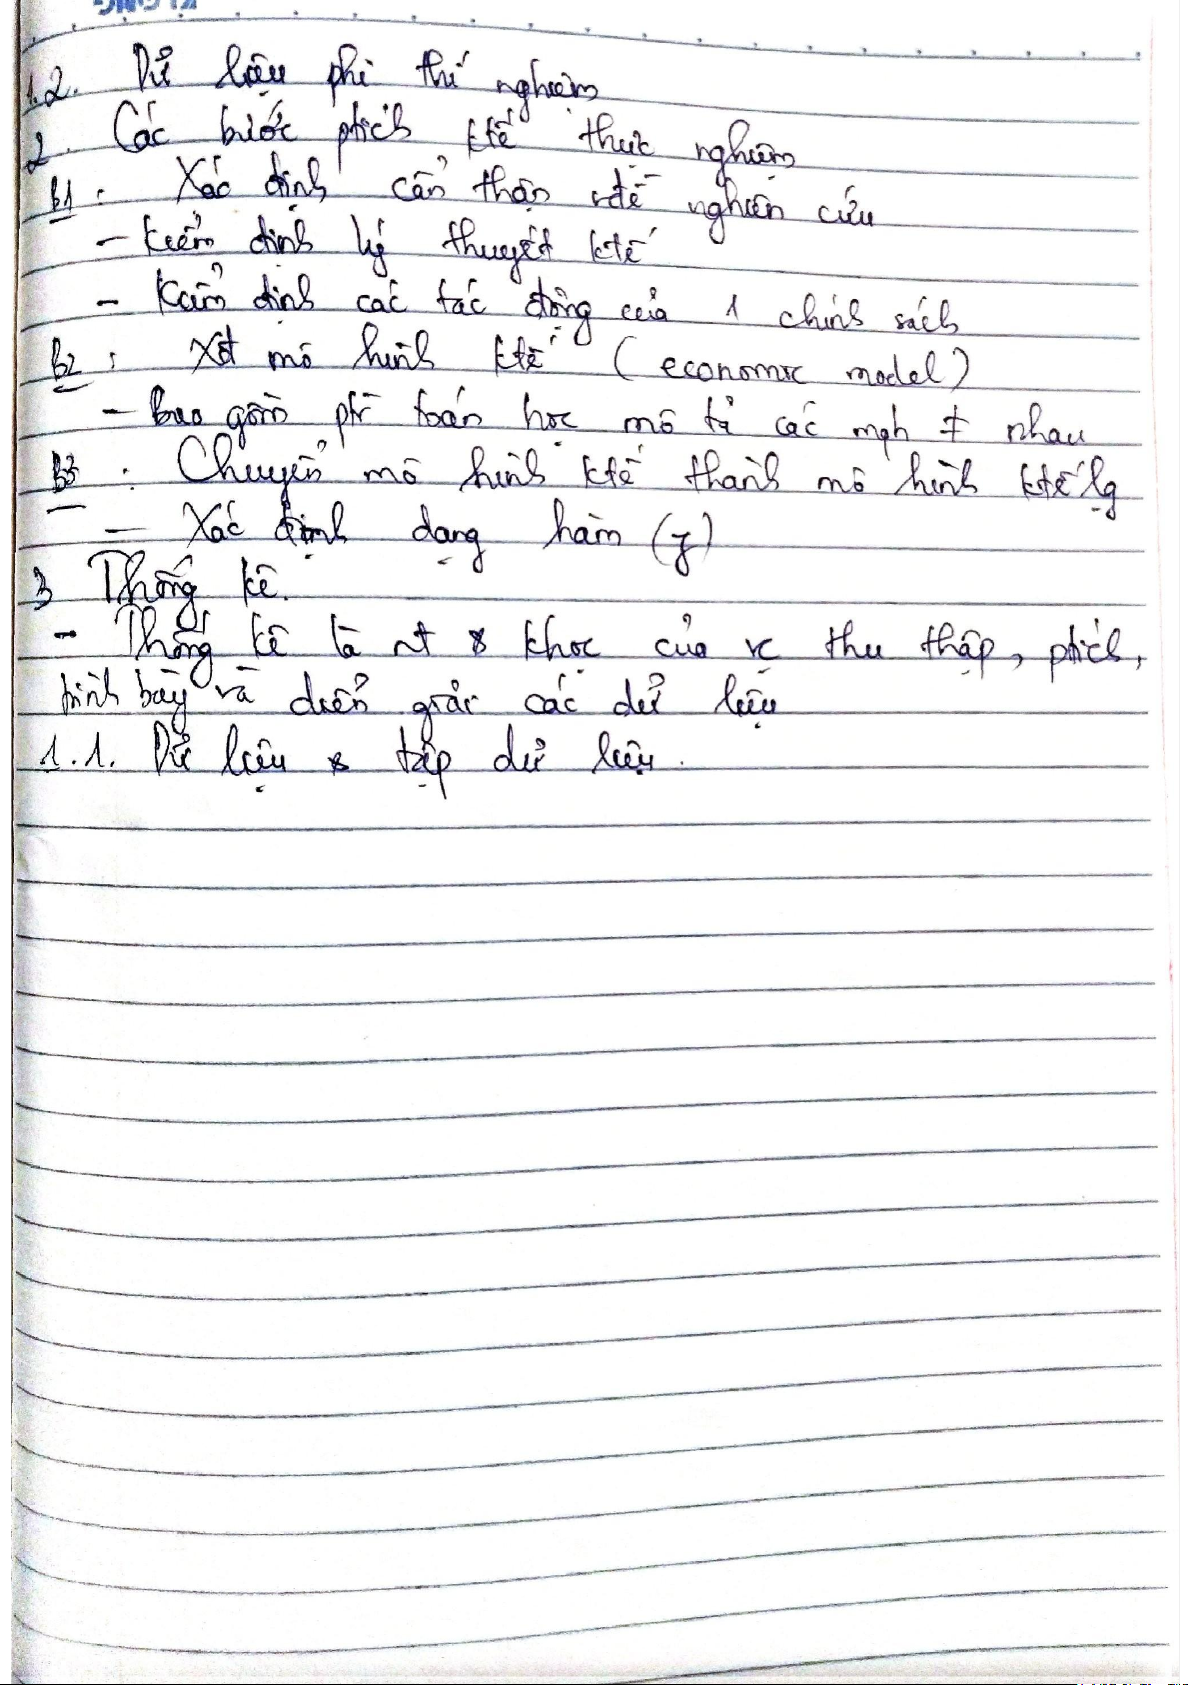 1.2. Dữ liệu phi thí nghiệm
2. Các bước ptích ktế thực nghiệm
B1: Xác định cẩn thận vđề nghiên cứu
- Kiểm định lý thuyết ktế
- Kiểm định các tác động của 1 chính sách
B2: Xét mô hình ktế (economic model)
- Bao gồm ptr toán học mô tả các mqh ≠ nhau
B3: Chuyển mô hình ktế thành mô hình ktế lg
- Xác định dạng hàm (y)
3 Thống kê.
- Thống kê là nt & khọc của vc thu thập, ptích,
trình bày và diễn giải các dữ liệu
1.1. Dữ liệu & tập dữ liệu.